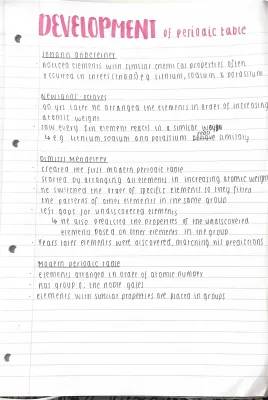 DEVELOPMENT of periodic table
Johann Dobereiner
noticed elements with similar chemical properties often
occured in threes (triads) e.g. lithium, sodium & potassium
Newlands' octaves
40 yrs later he arranged the elements in order of increasing
atomic weight
saw every 8th element reacts in a similar
↳ e.g. lithium, sodium and potassium similarly
Dimitri Mendeleev
· created the first modern periodic table
· started by arranging all elements in increasing atomic weight
· he switched the order of specific elements so they fitted
the patterns of other elements in the same group
· left gaps for undiscovered elements
↳ he also predicted the properties of the undiscovered
elements based on other elements in the group
· Years later elements were discovered, matching his predictions
Modern periodic table
· elements arranged in order of atomic number
· has group 0, the noble gases
· elements with similar properties are placed in groups